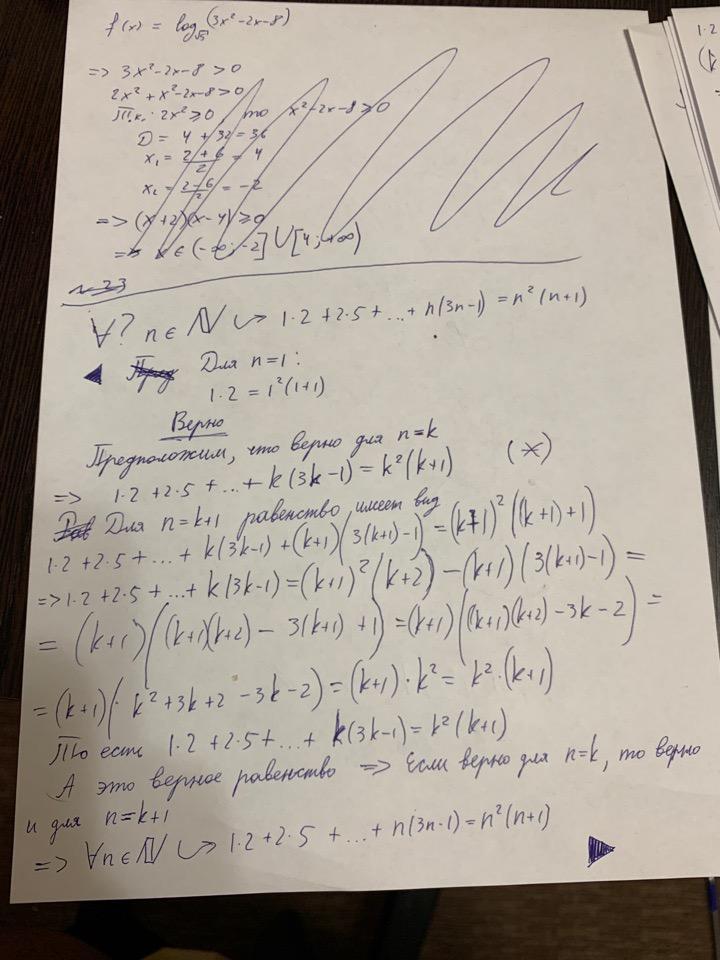 f(x) = log_√5 (3x²-2x-8)
=> 3x²-2x-8 > 0
2x² + x²-2x-8 > 0
Т.к. 2x² ≥ 0 то x²-2x-8 ≥ 0
D = 4 + 32 = 36
x₁ = (2+6)/2 = 4
x₂ = (2-6)/2 = -2
=> (x+2)(x-4) ≥ 0
=> x ∈ (-∞; -2] ∪ [4; +∞)
n 23
∀? n ∈ ℕ ↪ 1·2 + 2·5 + ... + n(3n-1) = n²(n+1)
◀ Пред Для n=1:
1·2 = 1²(1+1)
Верно
Предположим, что верно для n=k
=> 1·2 + 2·5 + ... + k(3k-1) = k²(k+1) (*)
Для n=k+1 равенство имеет вид
1·2 + 2·5 + ... + k(3k-1) + (k+1)(3(k+1)-1) = (k+1)²((k+1)+1)
=> 1·2 + 2·5 + ... + k(3k-1) = (k+1)²(k+2) - (k+1)(3(k+1)-1) =
= (k+1)((k+1)(k+2) - 3(k+1) + 1) = (k+1)((k+1)(k+2) - 3k - 2) =
= (k+1)(k² + 3k + 2 - 3k - 2) = (k+1)·k² = k²·(k+1)
То есть 1·2 + 2·5 + ... + k(3k-1) = k²(k+1)
А это верное равенство => Если верно для n=k, то верно
и для n=k+1
=> ∀n ∈ ℕ ↪ 1·2 + 2·5 + ... + n(3n-1) = n²(n+1) ▶
1·2
(k